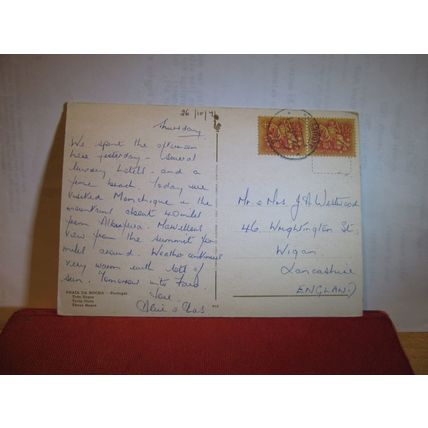 26/10/
Thursday
We spent the afternoon
here yesterday - several
luxury hotels - and a
fine beach. Today we
visited Monchique in the
mountains about 40 miles
from Albufeira. Marvellous
view from the summit for
miles around. Weather continues
very warm with lots of
sun. Tomorrow into Faro
Love
PRAIA DA ROCHA - Portugal
Mr & Mrs J A Westwood
46, St.
Wigan
Lancashire
ENGLAND